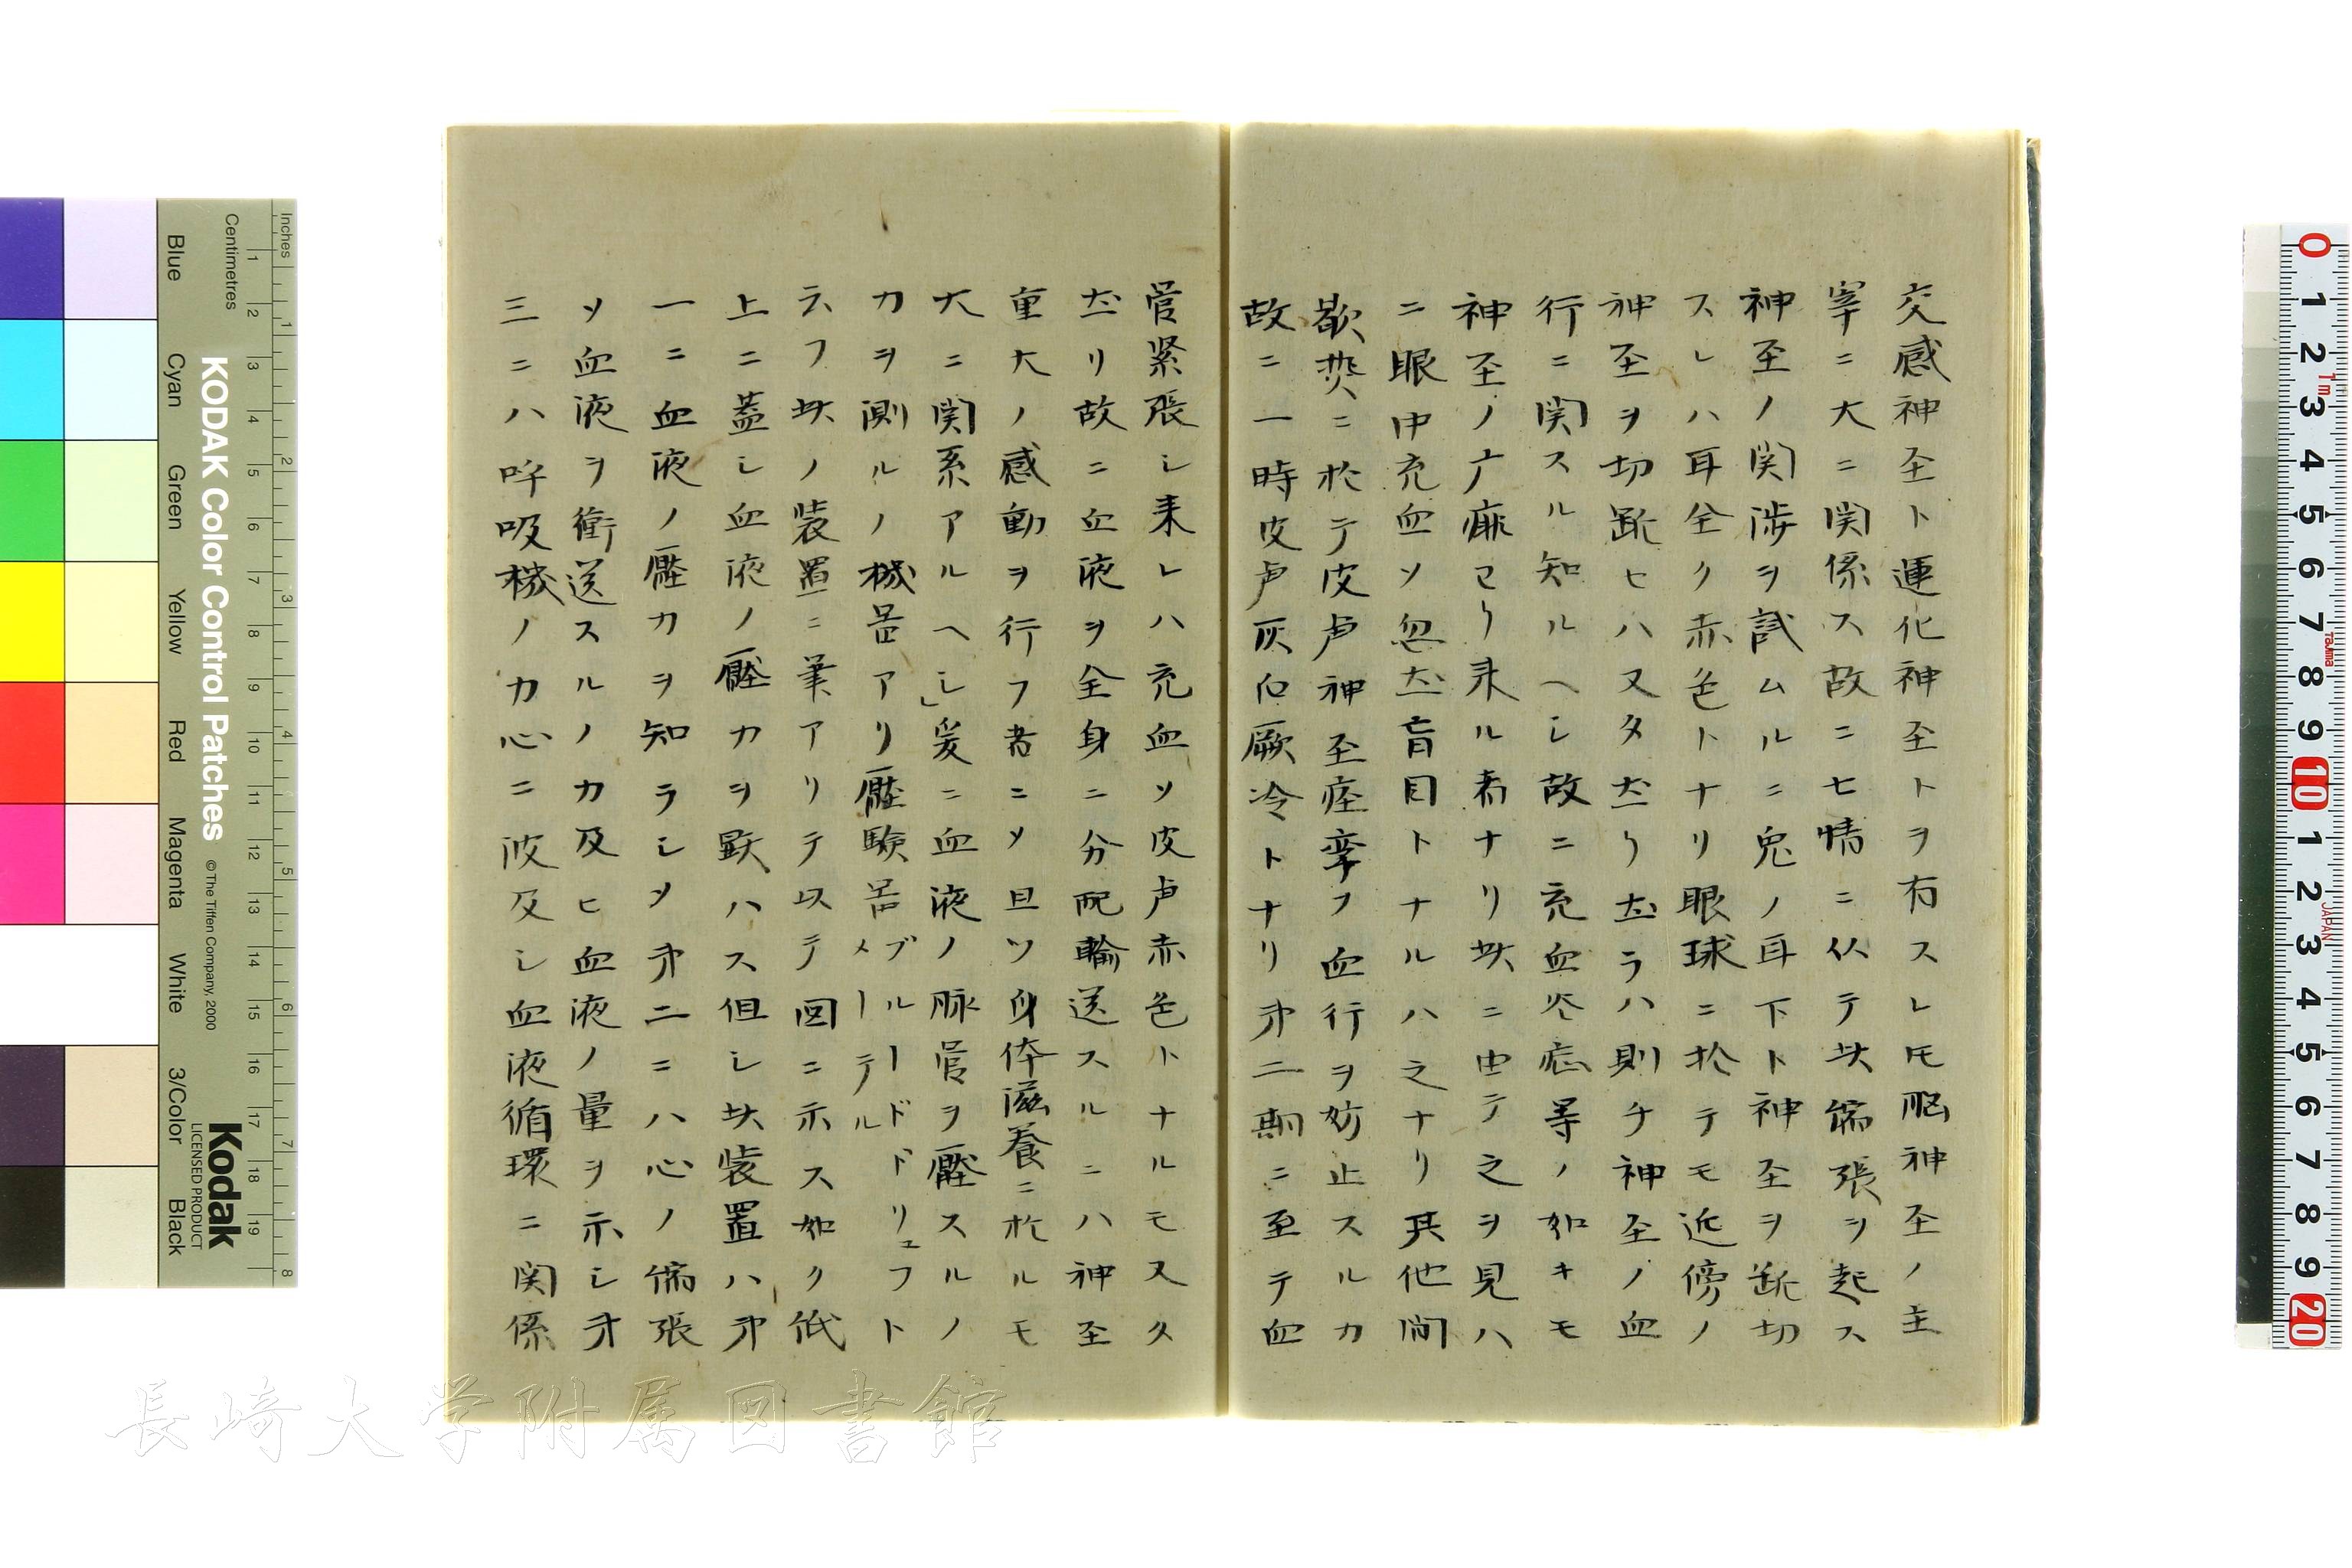 交感神至ト運化神至トヲ有スレ𪜈脳神至ノ主
宰ニ大ニ関係ス故ニ七情ニ仍テ其縮張ヲ起ス
神至ノ関渉ヲ試ムルニ兎ノ耳下ト神至ヲ断切
スレハ耳全ク赤色トナリ眼球ニ於テモ近傍ノ
神至ヲ切断セハ又タ然リ然ラハ則チ神至ノ血
行ニ関スル知ルヘシ故ニ充血炎症等ノ如キモ
神至ノ广痱ヨリ来ル者ナリ其ニ由テ之ヲ見ハ
ニ眼中充血ソ忽然盲目トナルハ之ナリ其他間
歇熱ニ於テ皮膚神至痙攣フ血行ヲ妨止スルカ
故ニ一時皮膚灰白厥冷トナリ第二期ニ至テ血
管緊張シ来レハ充血ソ皮膚赤色トナルモ又久
然リ故ニ血液ヲ全身ニ分配輸送スルニハ神至
重大ノ感動ヲ行フ者ニソ且ツ身体滋養ニ於ルモ
大ニ関系アルヘシ」爰ニ血液ノ脉管ヲ壓スルノ
力ヲ測ルノ機器アリ壓験器ブルードドリュフトメーテルト
云フ其ノ装置ニ葉アリテ以テ図ニ示ス如ク
上ニ蓋シ血液ノ壓力ヲ験ハス但シ其装置ハ第
一ニ血液ノ壓力ヲ知ラシソ第二ニハ心ノ縮張
ソ血液ヲ衝送スルノ力及ヒ血液ノ量ヲ示シ第
三ニハ呼吸機ノ力心ニ波及シ血液循環ニ関係
長崎大学附属図書館
KODAK Color Control Patches
© The Tiffen Company, 2000
Kodak
LICENSED PRODUCT
Inches
Centimetres
Blue
Cyan
Green
Yellow
Red
Magenta
White
3/Color
Black